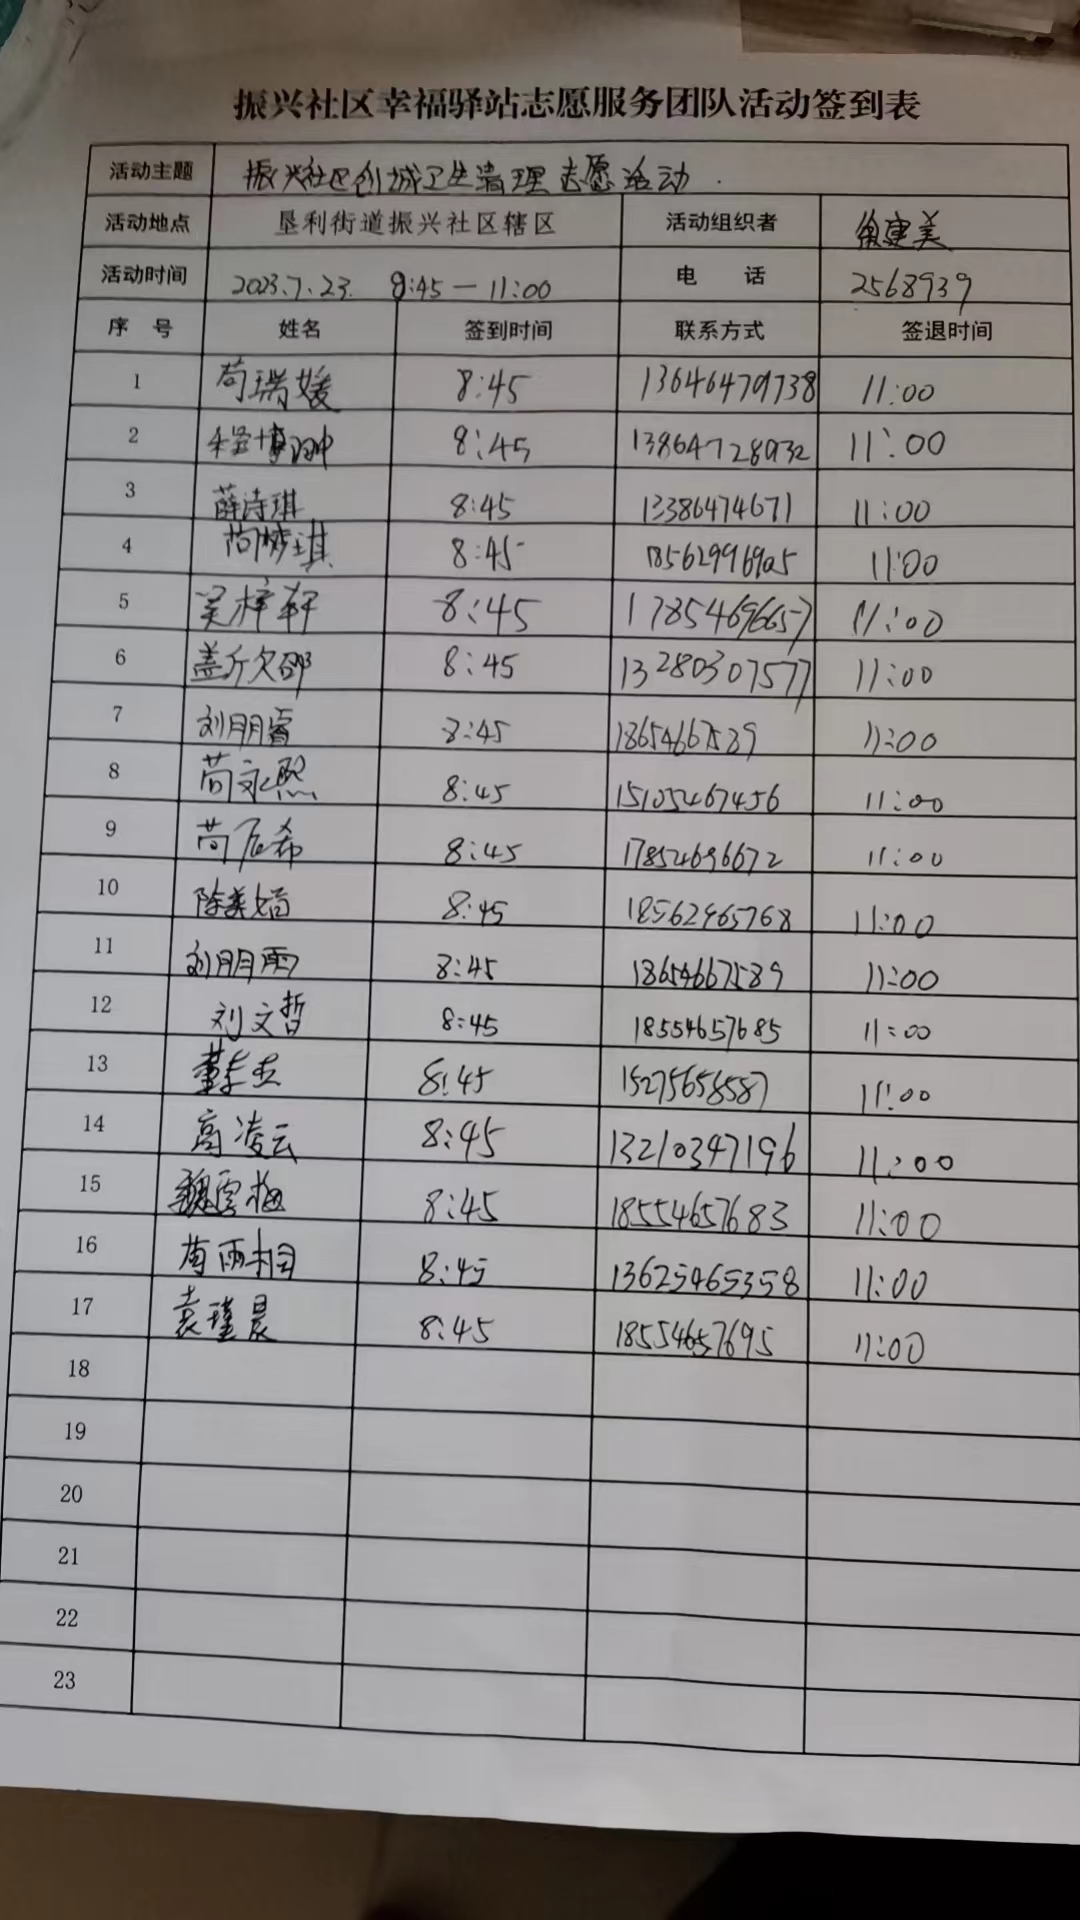 振兴社区幸福驿站志愿服务团队活动签到表
活动主题 振兴社区创城卫生清理志愿活动.
活动地点 垦利街道振兴社区辖区 活动组织者 徐建美
活动时间 2023.7.23. 8:45—11:00 电 话 2568939
序 号 姓名 签到时间 联系方式 签退时间
1 苟瑞媛 8:45 13646479738 11:00
2 程博翀 8:45 13864728932 11:00
3 薛诗琪 8:45 13386474671 11:00
4 苟梦琪 8:45 18562996905 11:00
5 吴梓轩 8:45 17854696657 11:00
6 盖 8:45 13280307577 11:00
7 刘朋睿 8:45 18654667589 11:00
8 苟永熙 8:45 15105467456 11:00
9 苟启希 8:45 17854696672 11:00
10 陈美娟 8:45 18562965768 11:00
11 刘朋雨 8:45 18654667589 11:00
12 刘文哲 8:45 18554657685 11:00
13 董 8:45 15275658587 11:00
14 高凌云 8:45 13210347196 11:00
15 魏雪梅 8:45 18554657683 11:00
16 苟雨桐 8:45 13625465358 11:00
17 袁瑾晨 8:45 18554657695 11:00
18
19
20
21
22
23